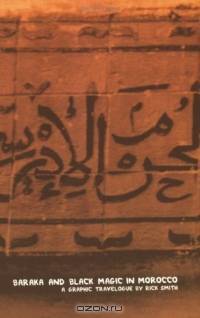 لحرم الإدريس
BARAKA AND BLACK MAGIC IN MOROCCO
A GRAPHIC TRAVELOGUE BY RICK SMITH
ozon.ru